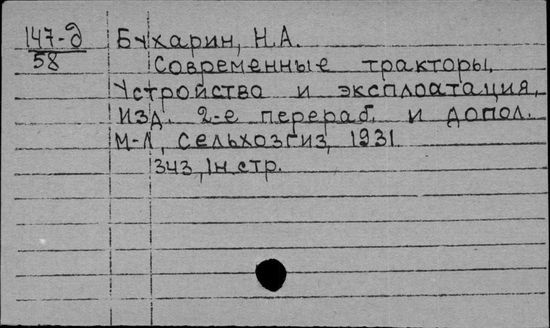 147-д
58
Бухарин, Н.А.
Современные тракторы.
Устройство и эксплоатация.
Изд. 2-е перераб. и допол.
М-Л, Сельхозгиз, 1931.
343, 1н. стр.